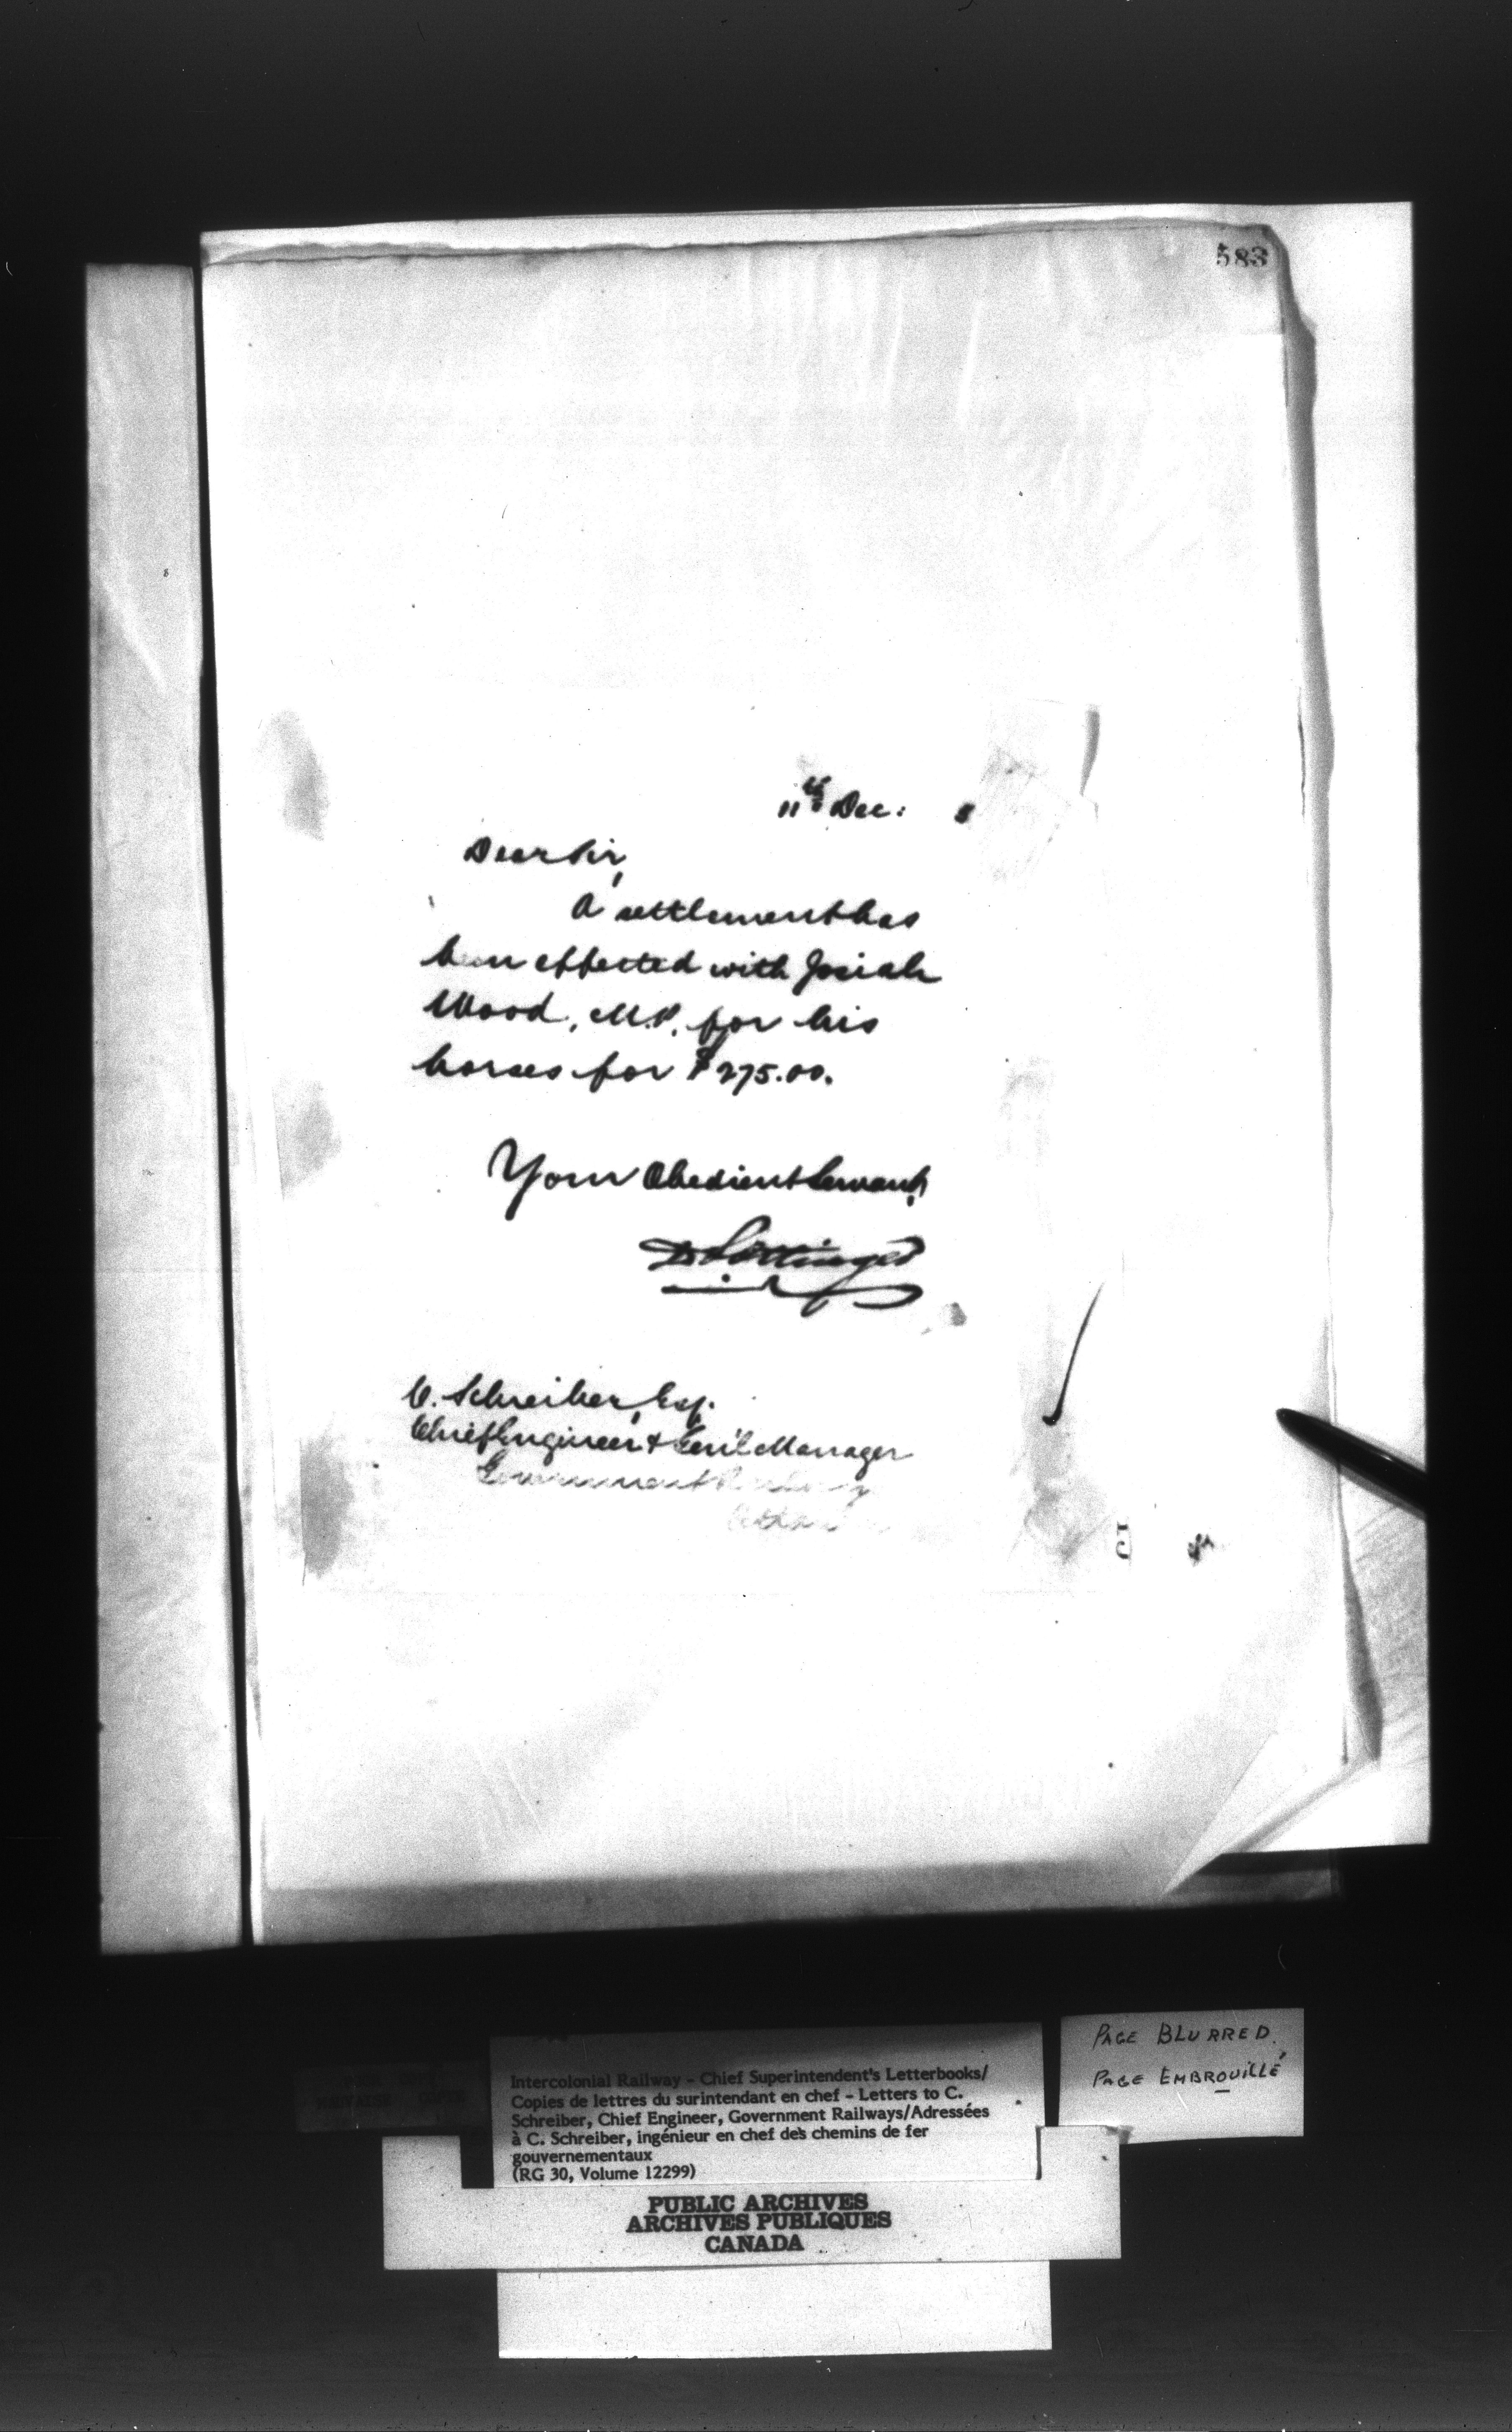 583
11th Dec: 8
Dear Sir,
A settlement has
been effected with Josiah
Wood, M.P. for his
horses for $275.00.
Your Obedient Servant,
D Pottinger
C. Schreiber, Esq.
Chief Engineer & Gen'l Manager
Government Railway
Ottawa
Intercolonial Railway – Chief Superintendent's Letterbooks/
Copies de lettres du surintendant en chef – Letters to C.
Schreiber, Chief Engineer, Government Railways/Adressées
à C. Schreiber, ingénieur en chef des chemins de fer
gouvernementaux
(RG 30, Volume 12299)
PUBLIC ARCHIVES
ARCHIVES PUBLIQUES
CANADA
PAGE BLURRED.
PAGE EMBROUILLÉ